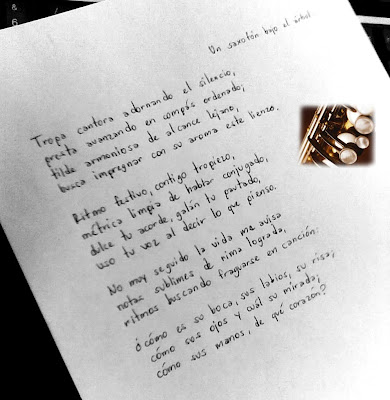 Un saxofón bajo el árbol.
Tropa cantora adornando el silencio,
presta avanzando en compás ordenado;
tilde armoniosa de alcance lejano,
busca impregnar con su aroma este lienzo.
Ritmo festivo, contigo tropiezo,
métrica limpia de hablar conjugado,
dulce tu acorde, galán tu pautado,
uso tu voz al decir lo que pienso.
No muy seguido la vida me avisa
notas sublimes de rima lograda,
ritmos buscando fraguarse en canción:
ó cómo es su boca, sus labios, su risa;
cómo sus ojos y cuál su mirada;
cómo sus manos, de qué corazón?